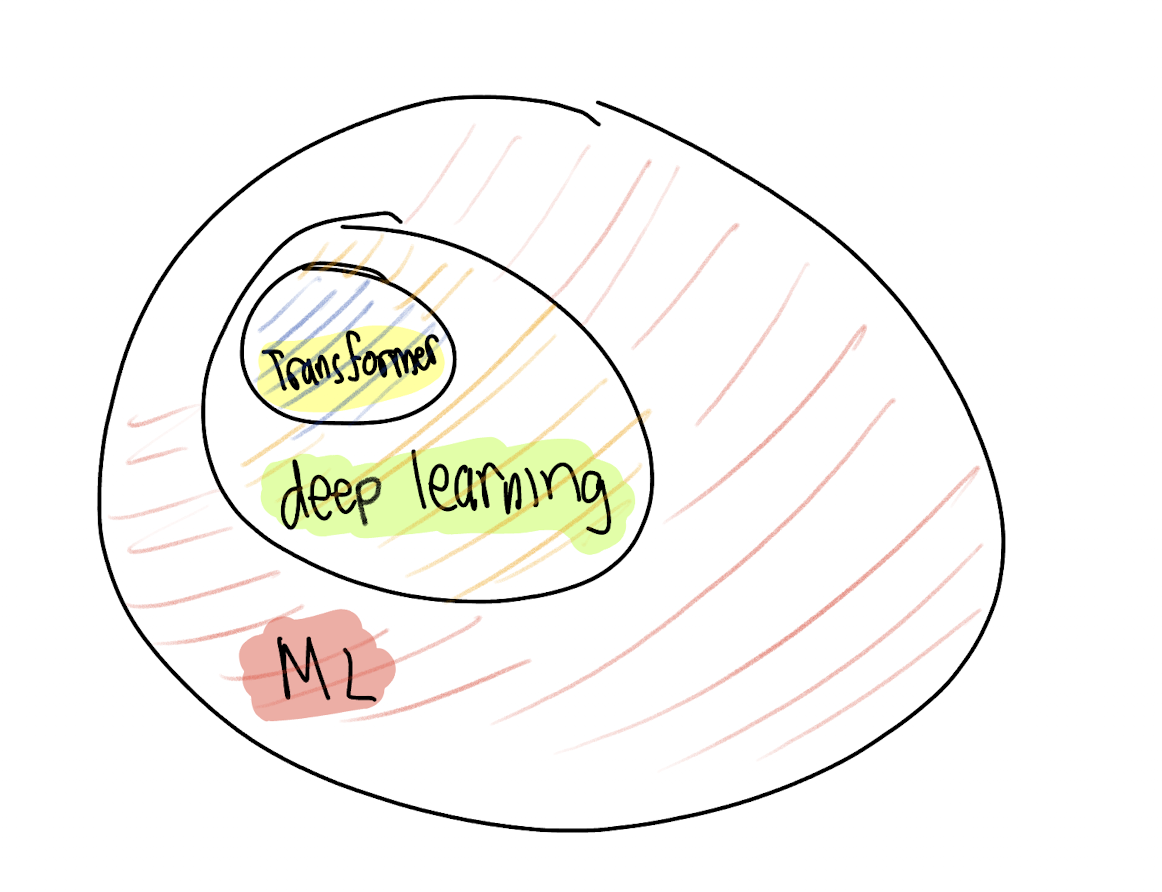 Transformer
deep learning
ML